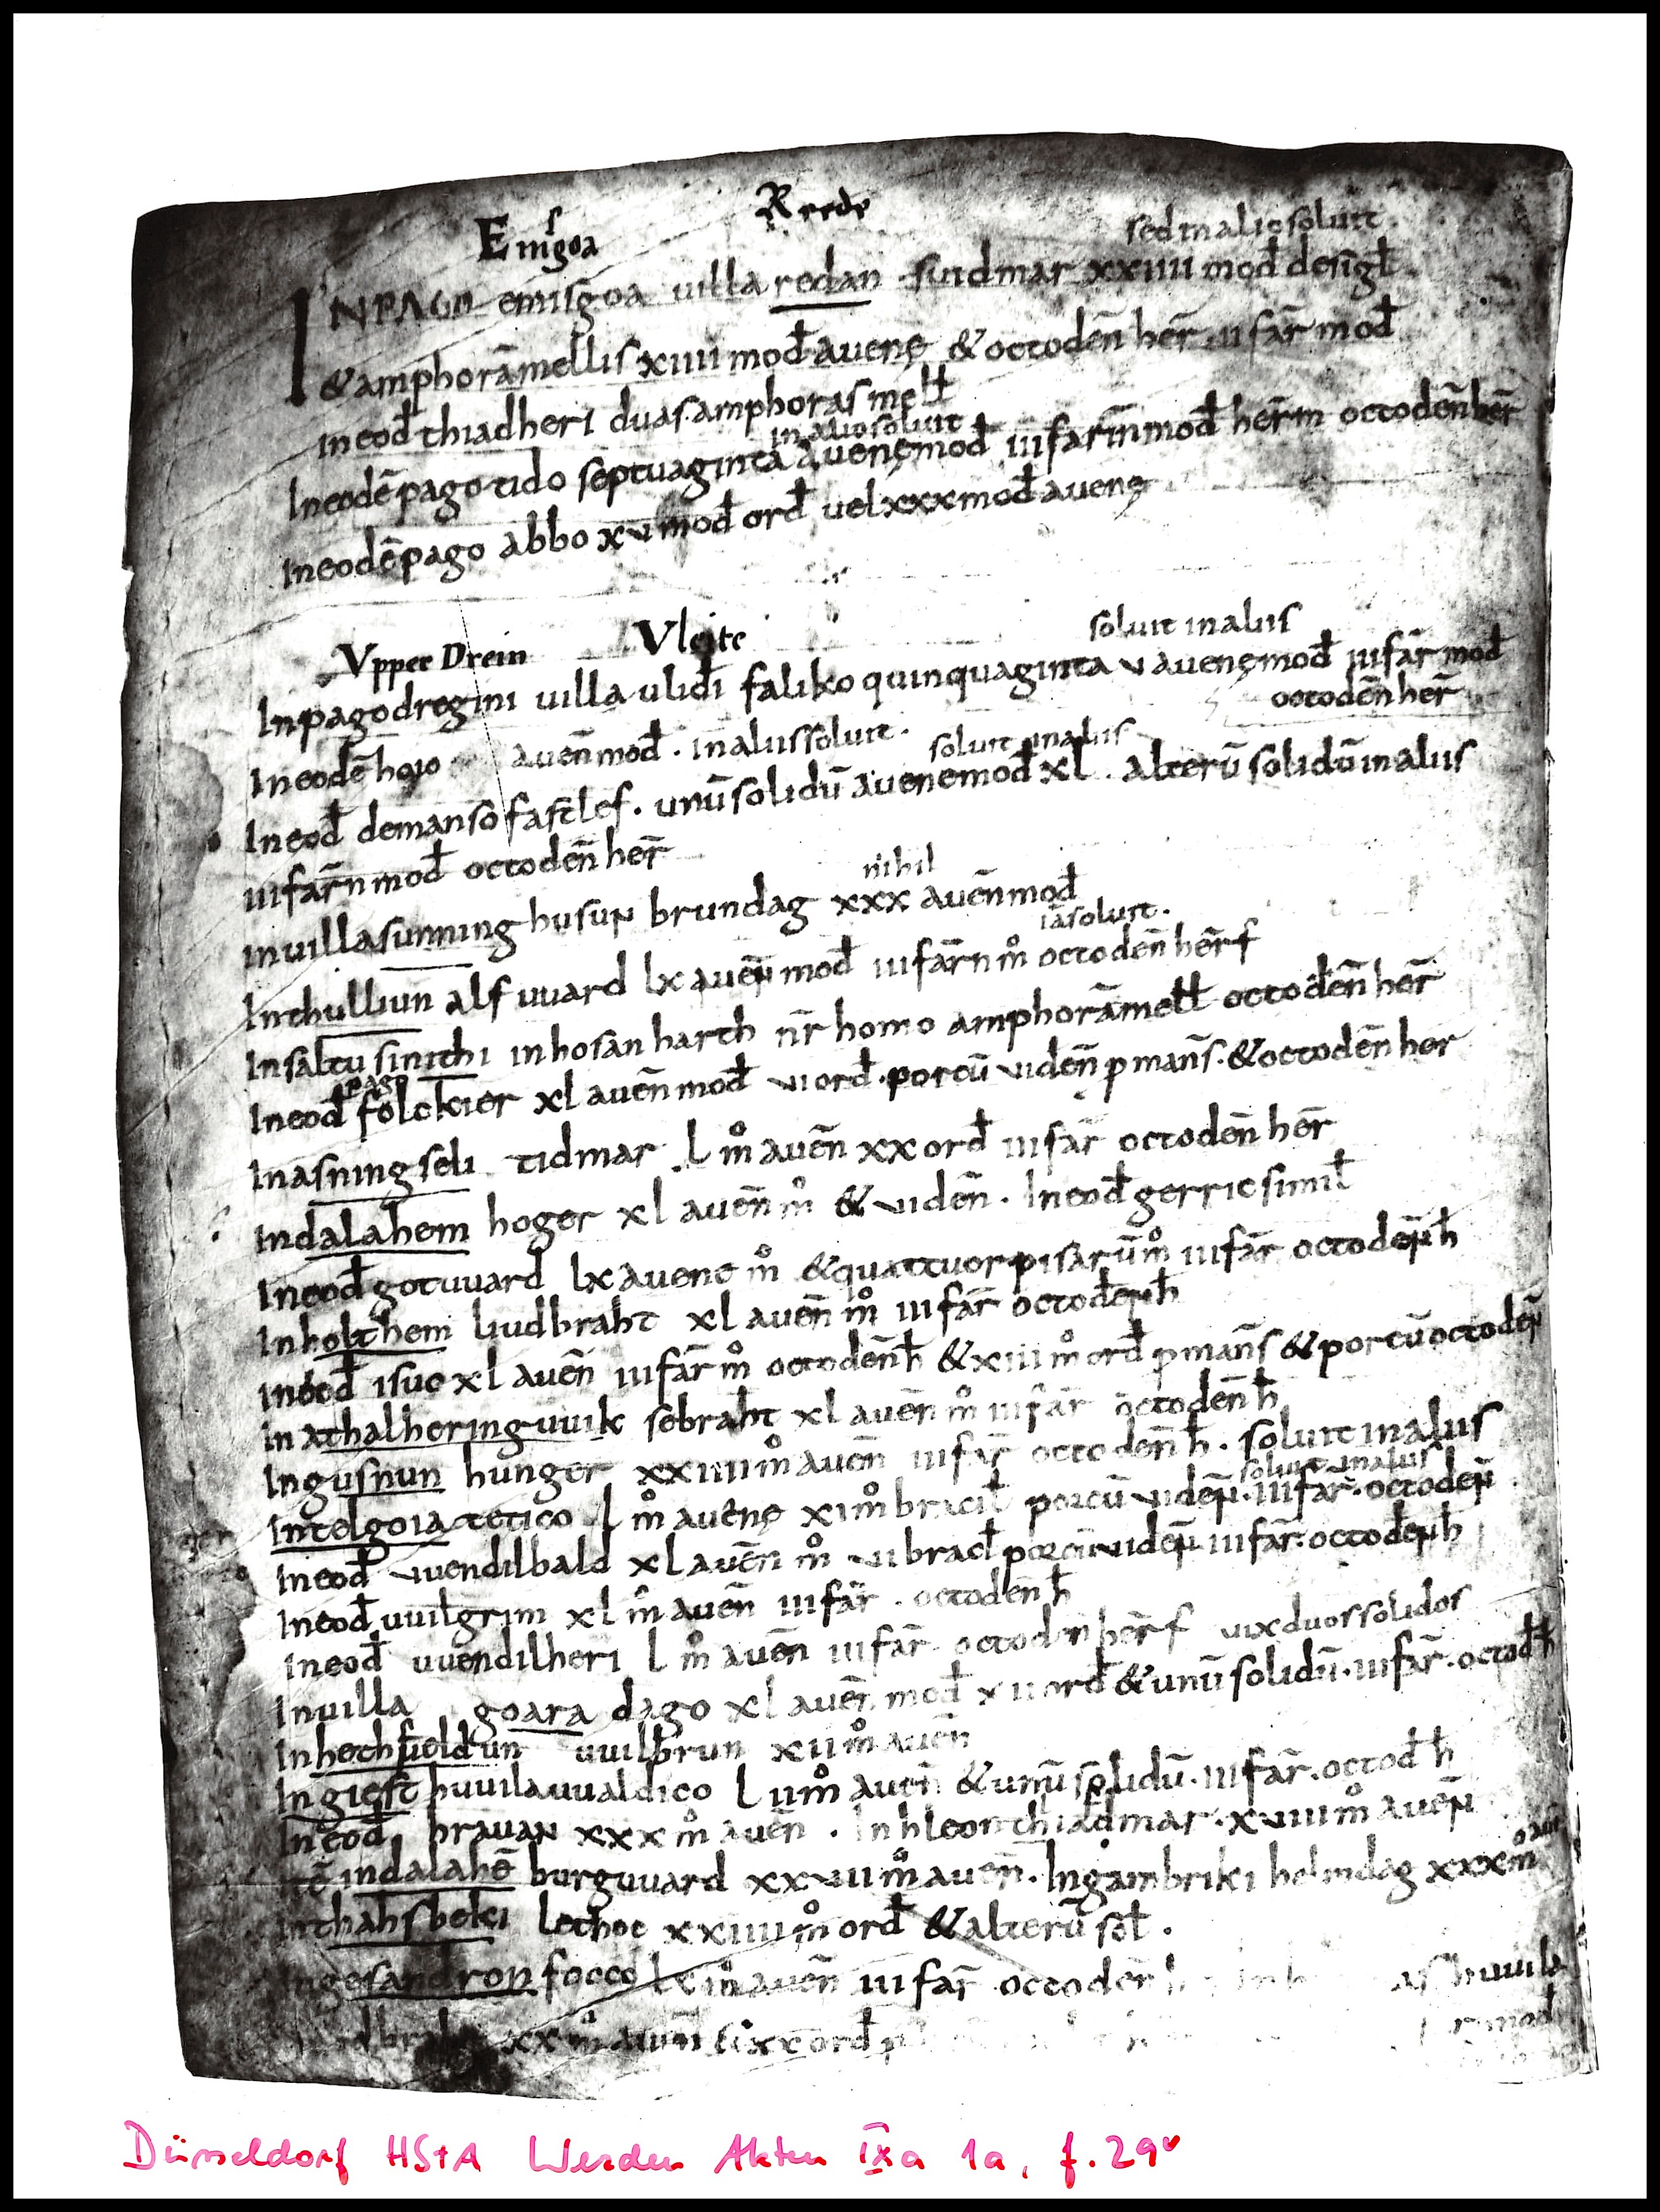 Emsgoa Reede
sed in alio soluit
INPAGO emisgoa uilla redan suidmar xxiiii mod̄ desigl̄
&amphorā mellis xiiii mod̄ auenę & octo den̄ her̄ iii far̄ mod̄
in eod̄ thiadheri duas amphoras mell̄
in alio soluit
In eodē pago tido septuaginta auenę mod̄ iii farin̄ mod̄ her̄m octo den̄ her̄
In eodē pago abbo xv mod̄ ord̄ uel xxx mod̄ auenę
Vpper Drein Vleite
soluit in aliis
In pago dregini uilla ulidi faliko quinquaginta v auenę mod̄ iii far̄ mod̄
octo den̄ her̄
In eodē hoio auen̄ mod̄ . in aliis soluit .
soluit in aliis
In eod̄ de manso fastlef . unū solidū auene mod̄ xl . alterū solidū in aliis
iii far̄n mod̄ octo den̄ her̄
nihil
in uilla sunninghusun brundag xxx auen̄ mod̄
iā soluit .
In thulliun alfuuard lx auen̄ mod̄ iii far̄n m̊ octo den̄ her̄f
In saltu sinithi in hosanharth nr̄ homo amphorā mell̄ octo den̄ her̄
pago
In eod̄ folckier xl auen̄ mod̄ vi ord̄ . porcū vi den̄ p man̄s . & octo den̄ her
In asningseli tidmar . l m̊ auen̄ xx ord̄ iii far̄ octo den̄ her̄
In dalahem hoger xl auen̄ m̊ & vi den̄ . In eod̄ gerric simil̄
In eod̄ gotuuard lx auene m̊ & quattuor pisarū m̊ iii far̄ octo den̄ h̄
In holthem liudbraht xl auen̄ m̊ iii far̄ octo den̄ h̄
In eod̄ isuc xl auen̄ iii far̄ m̊ octo den̄ h̄ & xiii m̊ ord̄ p man̄s & porcū octo den̄
In athalheringuuik sebraht xl auen̄ m̊ iii far̄ octo den̄ h̄
In gusnun hunger xxiiii m̊ auen̄ iii far̄ octo den̄ h̄ . soluit in aliis
soluit in aliis
In telgoia tetico l m̊ auenę xi m̊ bracil̄ porcū vi den̄ . iii far̄ . octo den̄
In eod̄ vuendilbald xl auen̄ m̊ vi bracl̄ porcū vi den̄ . iii far̄ . octo den̄ h̄
In eod̄ uuilgrim xl m̊ auen̄ iii far̄ . octo den̄ h̄
In eod̄ uuendilheri l m̊ auen̄ iii far̄ . octo den̄ her̄f vix duos solidos
In uilla goara dago xl auen̄ mod̄ xii ord̄ & unū solidū . iii far̄ . octo d̄ h̄
In hothfeldun uuilbrun xii m̊ auen̄
In gist huuilauualdico l iim̊ auen̄ & unū solidū . iii far̄ . octo d̄ h̄
In eod̄ brauan xxx m̊ auen̄ . In hleon thiadmar . xviii m̊ auen̄
in dalahē burguuard xxvii m̊ auen̄ . In gambriki helmdag xxx m̊
In thahsbeki lethoc xxiiii m̊ ord̄ & alterū sol̄ .
In gesandron focco auen̄ iii far̄ octo den̄
xx m̊ auen̄ xx ord̄ mod̄
Düsseldorf HStA Werden Akten IXa 1a, f. 29v